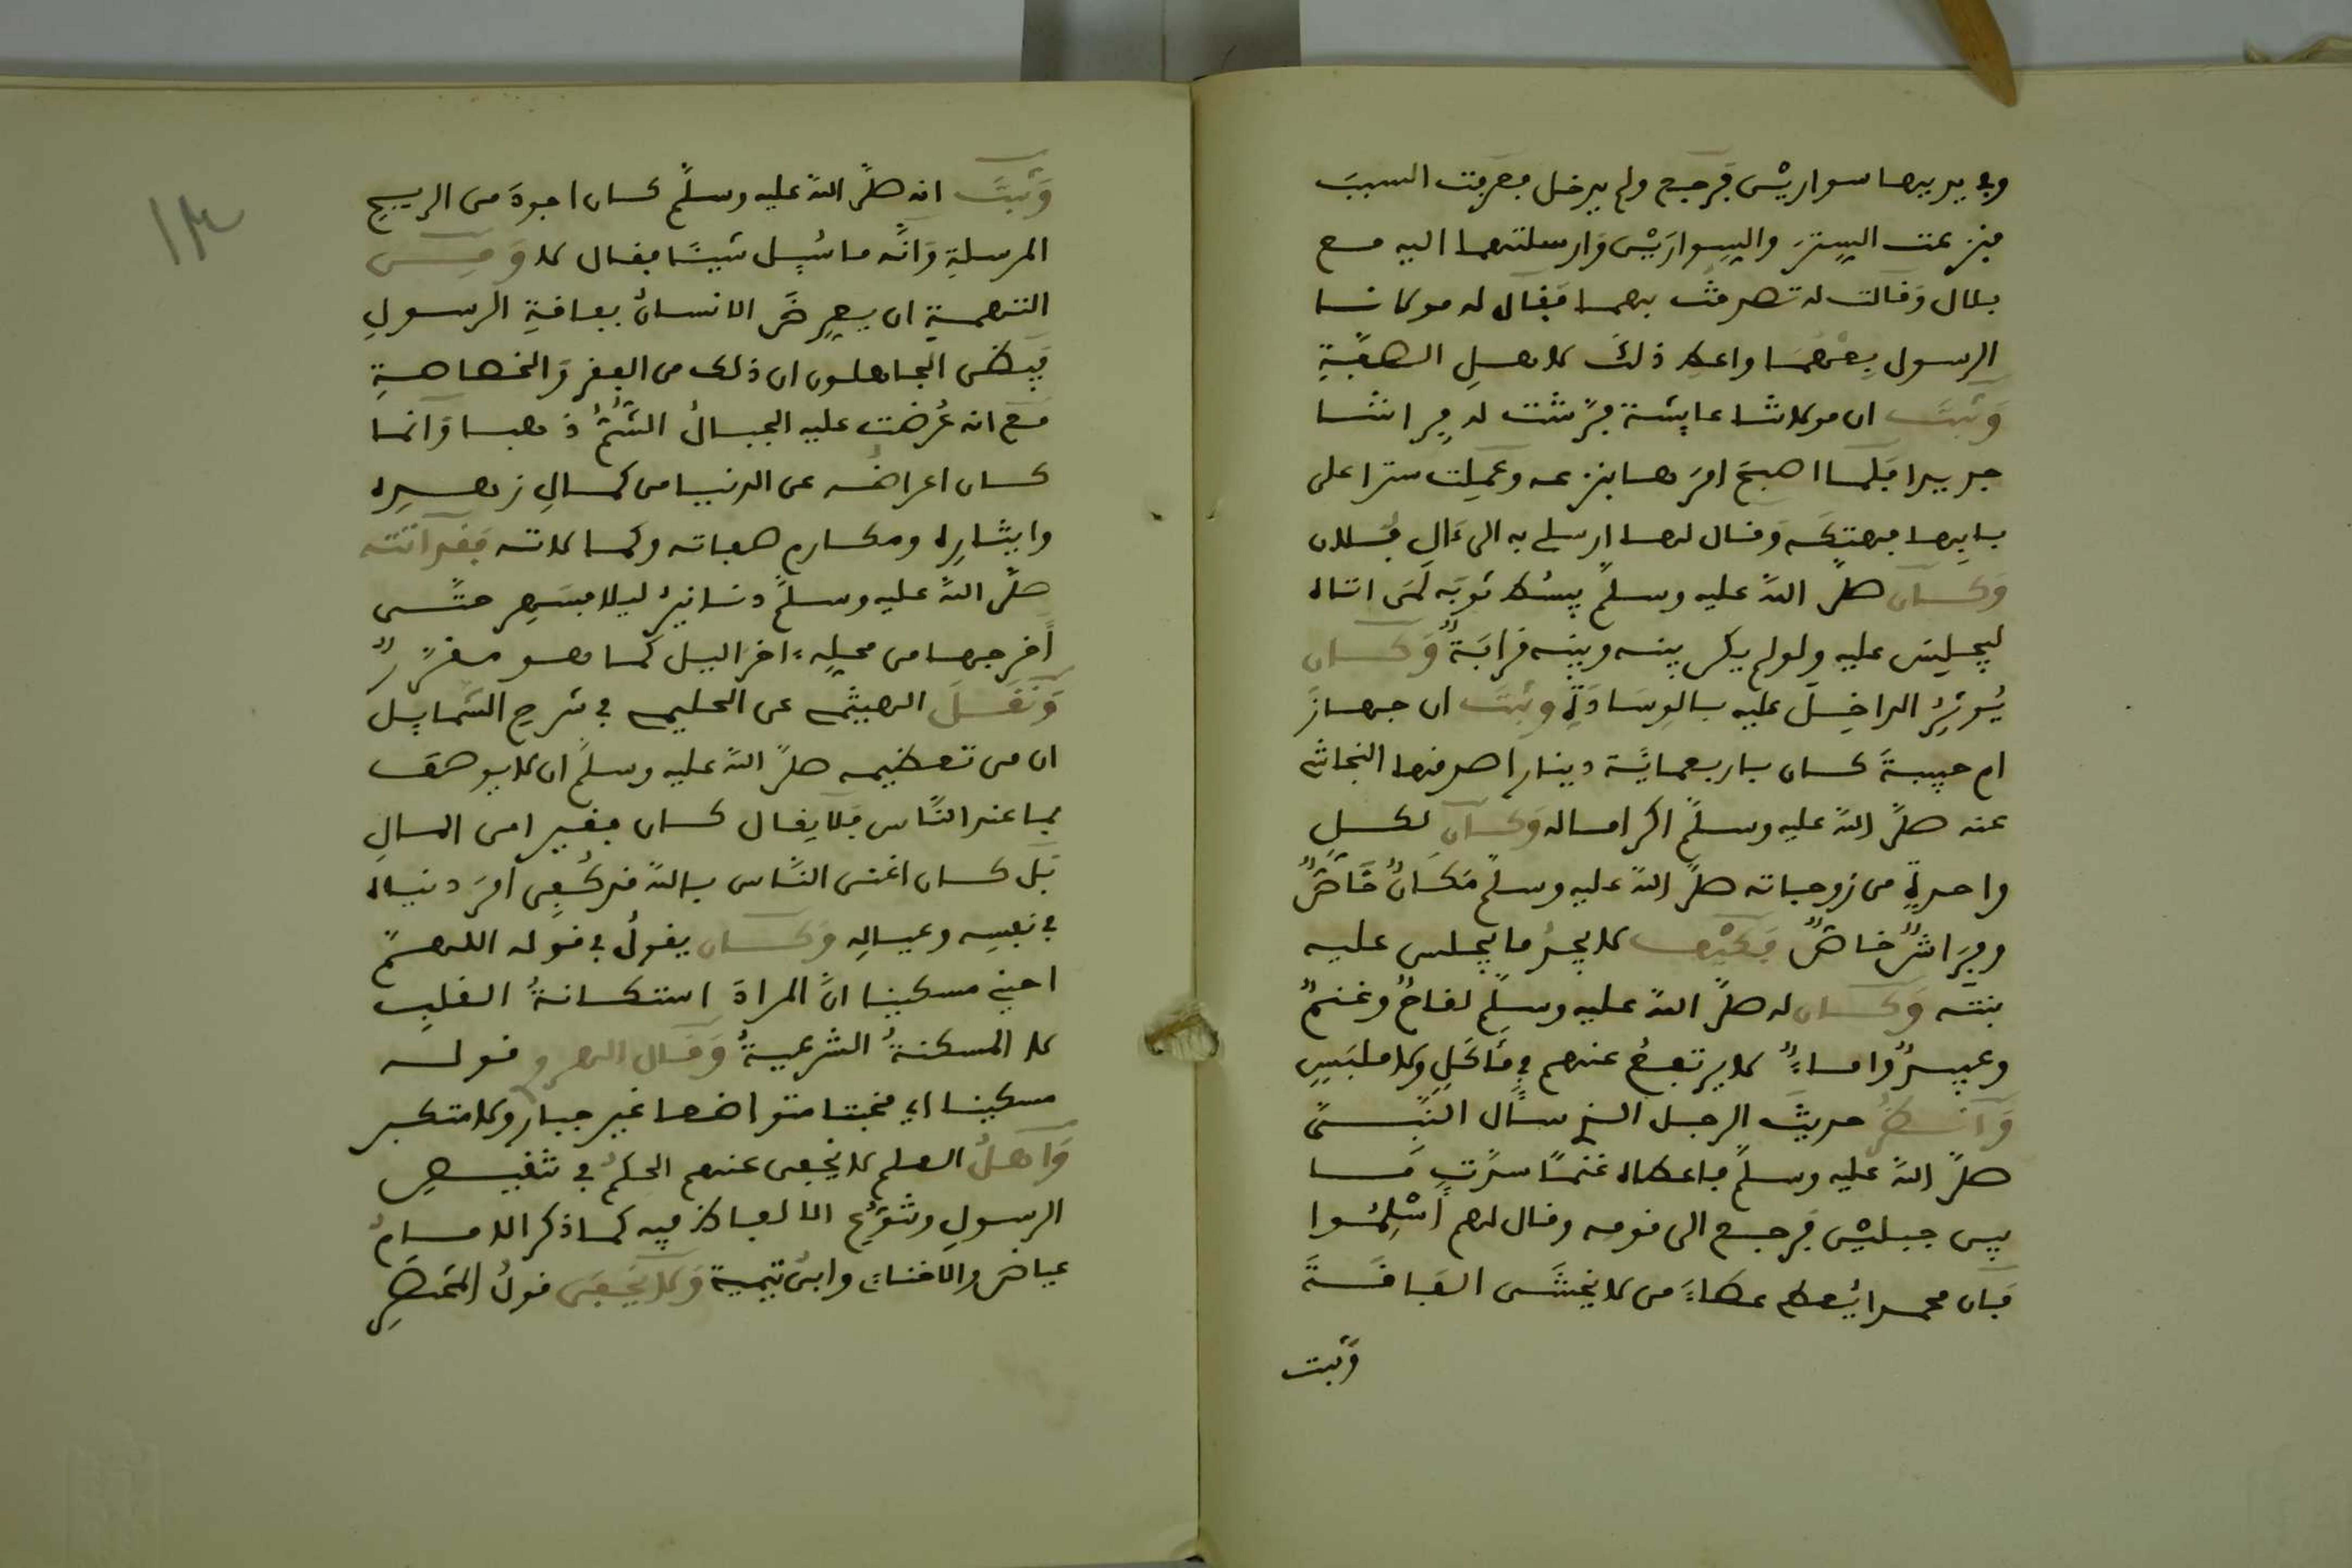 وفي يديها سوارين فرجع ولم يدخل فعرفت السبب
فنزعت الستر والسوارين وارسلتهما اليه مع
بلال وقالت له تصرفت بهما فقال له مولانا
الرسول بعهما واعط ذلك لاهل الصفة
وثبت ان مولاتنا عايشة فرشت له فراشا
جديدا فلما اصبح امرها بنزعه وعملت سترا على
بابها فهتكه وقال لها ارسلي به الى ءال فلان
وكان صلى الله عليه وسلم يبسط ثوبه لمن اتاه
ليجلس عليه ولو لم يكن بينه وبينه قرابة وكان
يوثر الداخل عليه بالوسادة وثبت ان جهاز
ام حبيبة كان باربعماية دينارا صرفها النجاشي
عنه صلى الله عليه وسلم اكراما له وكان لكل
واحدة من زوجاته صلى الله عليه وسلم مكان خاص
وفراش خاص فكيف لا يجد ما يجلس عليه
بنته وكان له صلى الله عليه وسلم لقاح وغنم
وعبيد واماء لا يرتفع عنهم في ماكل ولا ملبس
وانظر حديث الرجل الذي سأل النبي
صلى الله عليه وسلم فاعطاه غنما سدت ما
بين جبلين فرجع الى قومه وقال لهم أسلموا
فان محمدا يعطي عطاء من لا يخشى الفاقة
وثبت
١٣
وثبت انه صلى الله عليه وسلم كان اجود من الريح
المرسلة وانه ما سيل شيئا فقال لا ومن
التهمة ان يعرض الانسان بفاقة الرسول
فيظن الجاهلون ان ذلك من الفقر والخصاصة
مع انه عرضت عليه الجبال الشم ذهبا وانما
كان اعراضه عن الدنيا من كمال زهده
وايثاره ومكارم صفاته وكمالاته فقد اتته
صلى الله عليه وسلم دنانير ليلا فسهر حتى
أخرجها من محله ءاخر اليل كما هو مقرر
ونقل الهيثمي عن الحليمي في شرح الشمايل
ان من تعظيمه صلى الله عليه وسلم ان لا يوصف
بما عند الناس فلا يقال كان فقيرا من المال
بل كان اغنى الناس بالله قد كفى امر دنياه
في نفسه وعياله وكان يقول في قوله اللهم
احيني مسكينا ان المراد استكانة القلب
لا المسكنة الشرعية وقال الهروي قوله
مسكينا اي مخبتا متواضعا غير جبار ولا متكبر
واهل العلم لا يخفى عنهم الحكم في تنقيص
الرسول وتنوع الالفاظ فيه كما ذكر الامام
عياض والاقناء وابن تيمية ولا يخفى قول المختصر